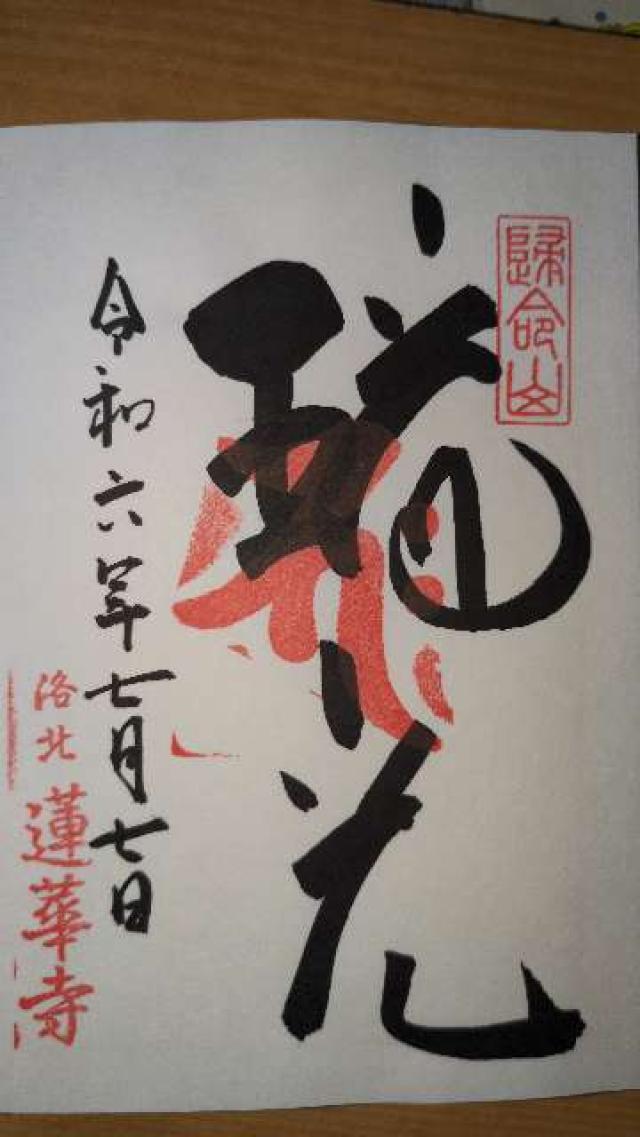 歸命山
花
令和六年七月七日
洛北
蓮華寺